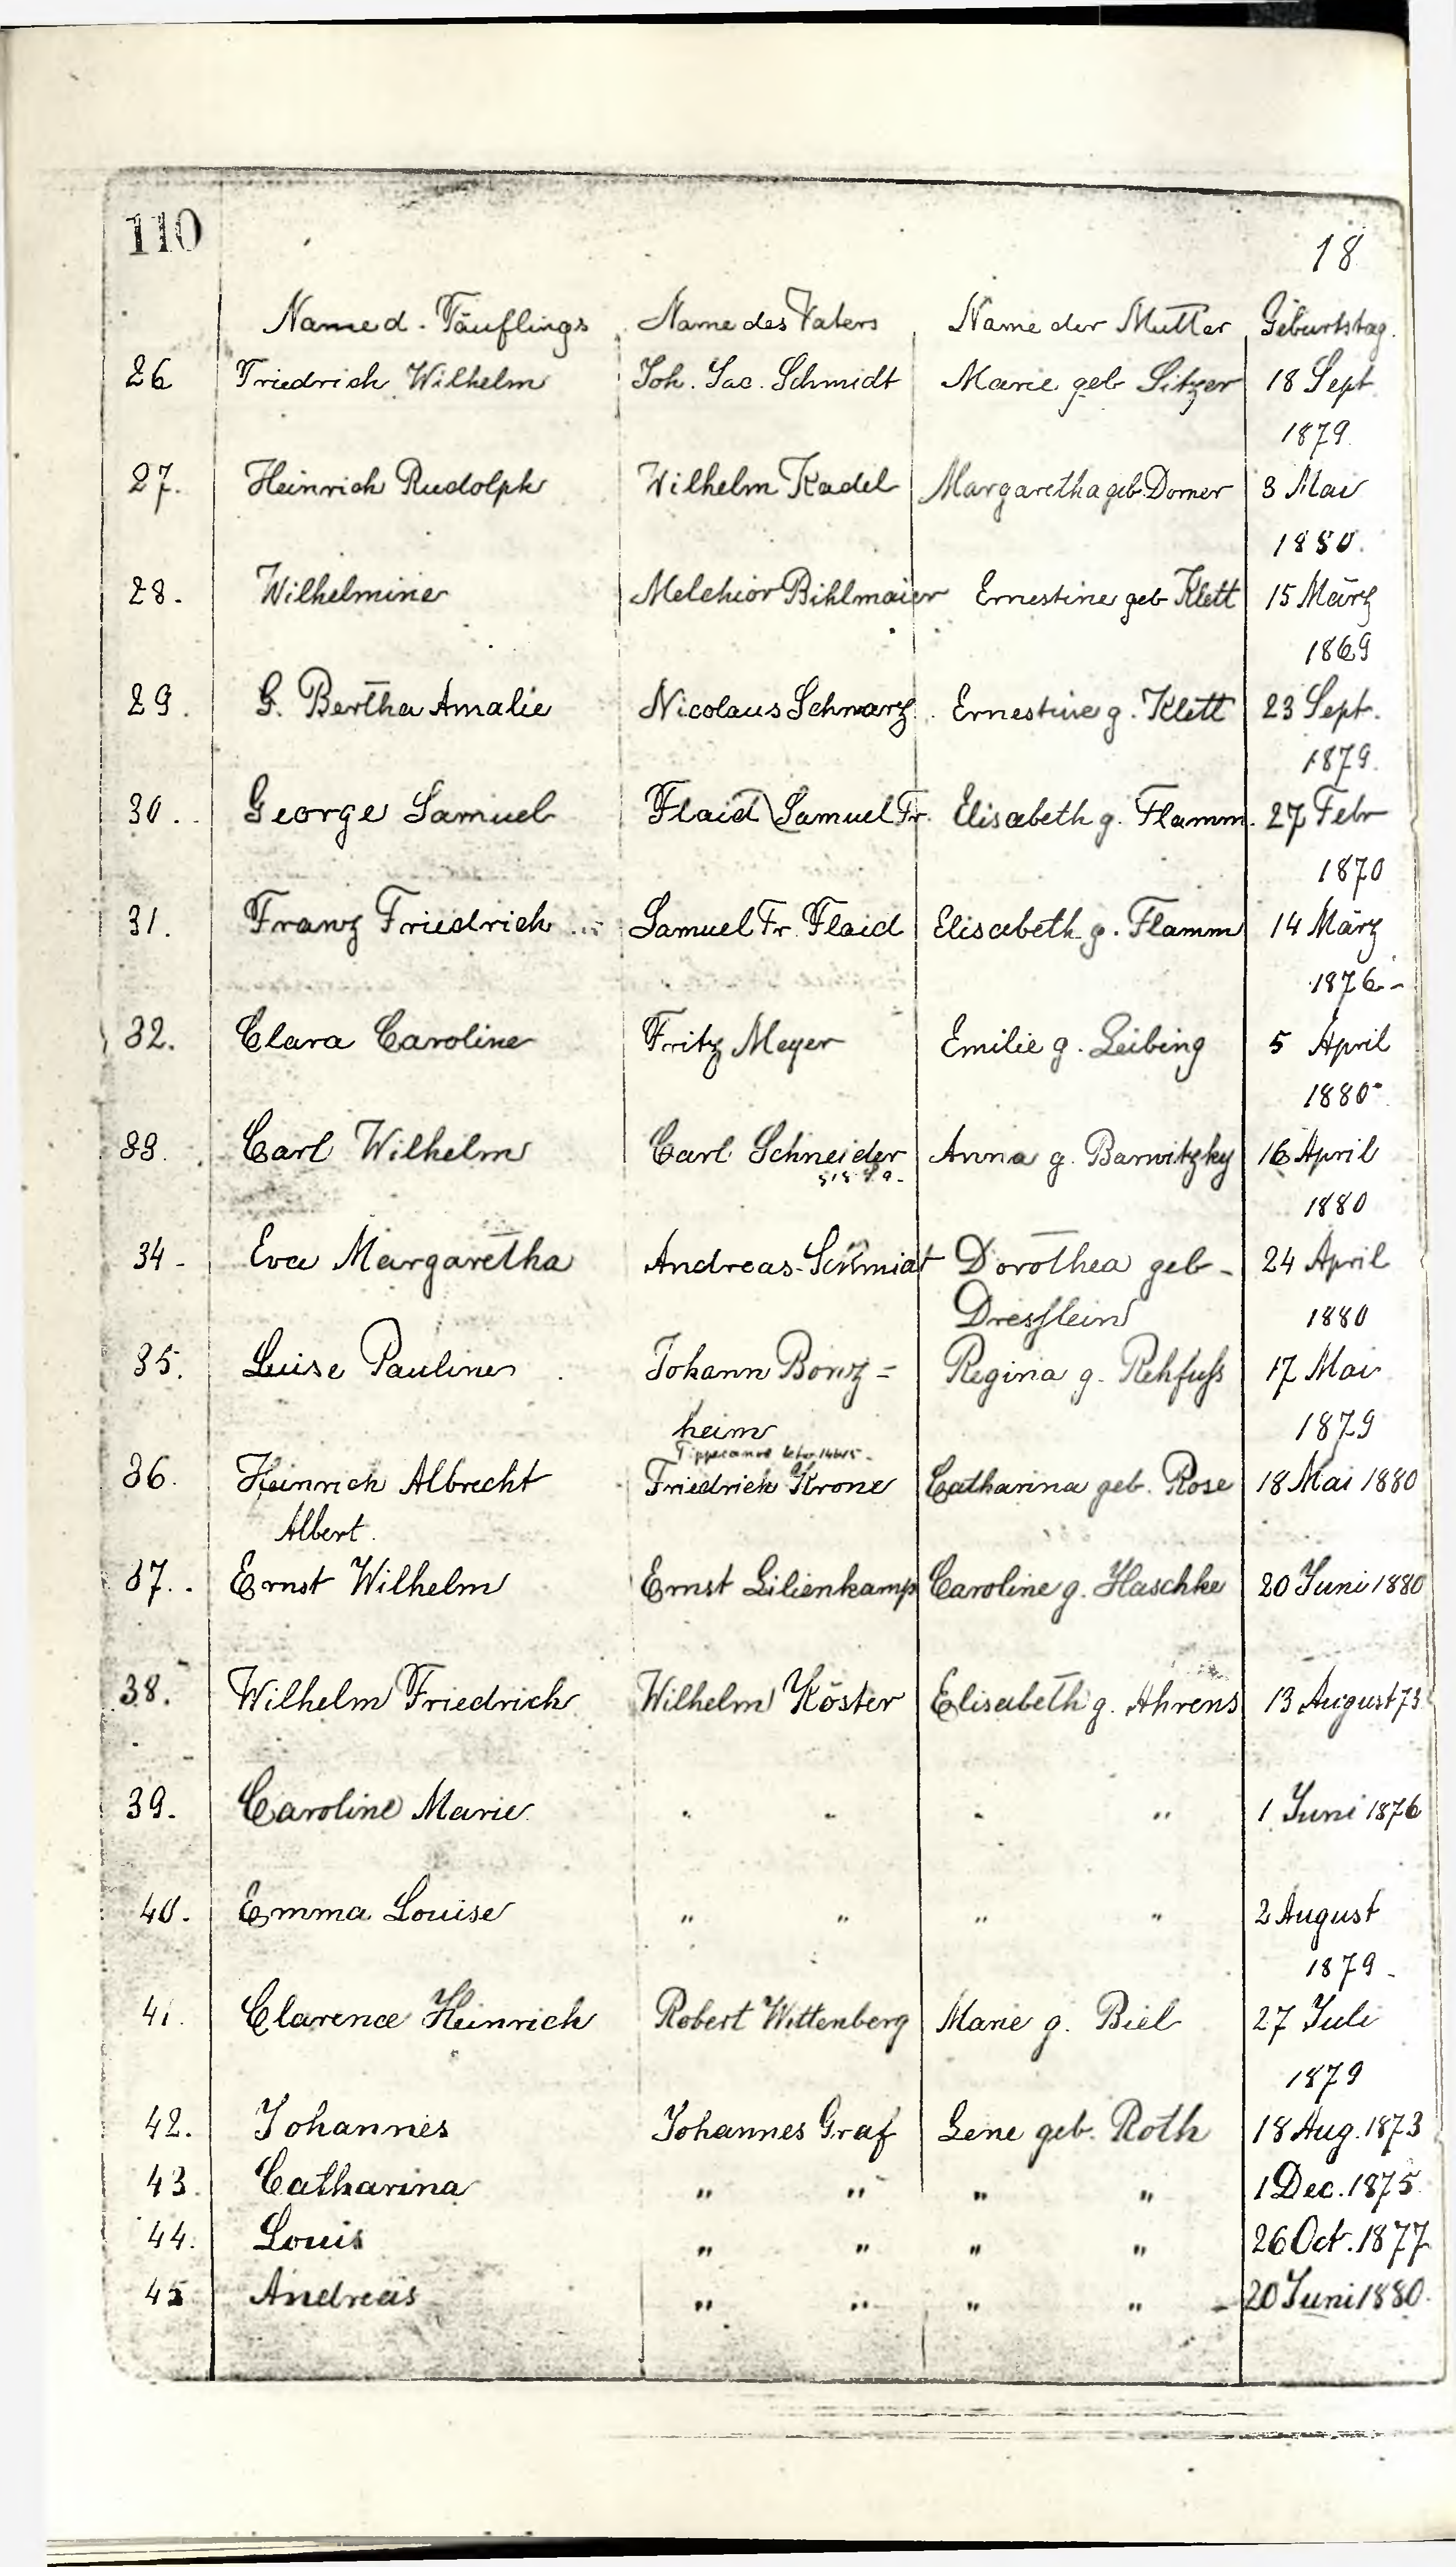 110
18
Name d. Täuflings Name des Vaters Name der Mutter Geburtstag.
26 Friedrich Wilhelm Joh. Jac. Schmidt Marie geb Sitzer 18 Sept.
1879.
27. Heinrich Rudolph Wilhelm Kadel Margaretha geb. Domer 3 Mai
1880.
28. Wilhelmine Melchior Bihlmaier Ernestine geb Klett 15 März
1869
29. G. Bertha Amalie Nicolaus Schwarz. Ernestine g. Klett 23 Sept.
1879.
30. George Samuel Flaid Samuel Fr. Elisabeth g. Flamm. 27 Febr
1870
31. Franz Friedrich Samuel Fr. Flaid Elisabeth g. Flamm 14 März
1876-
32. Clara Caroline Fritz Meyer Emilie g. Leibing 5 April
1880
33. Carl Wilhelm Carl Schneider Anna g. Barwitzky 16 April
1880
34- Eva Margaretha Andreas Schmidt Dorothea geb- 24 April
Dresslein 1880
35. Luise Pauline Johann Bonz= Regina g. Rehfuß 17 Mai
heim 1879
Tippecanoe
36. Heinrich Albrecht Friedrich Krone Catharina geb. Rose 18 Mai 1880
Albert.
37. Ernst Wilhelm Ernst Lilienkamp Caroline g. Haschke 20 Juni 1880
38. Wilhelm Friedrich Wilhelm Köster Elisabeth g. Ahrens 13 August 73
39. Caroline Marie " " " " 1 Juni 1876
40. Emma Louise " " " " 2 August
1879-
41. Clarence Heinrich Robert Wittenberg Marie g. Biel 27 Juli
1879
42. Johannes Johannes Graf Lene geb. Roth 18 Aug. 1873
43. Catharina " " " " 1 Dec. 1875
44. Louis " " " " 26 Oct. 1877
45 Andreas " " " " 20 Juni 1880.